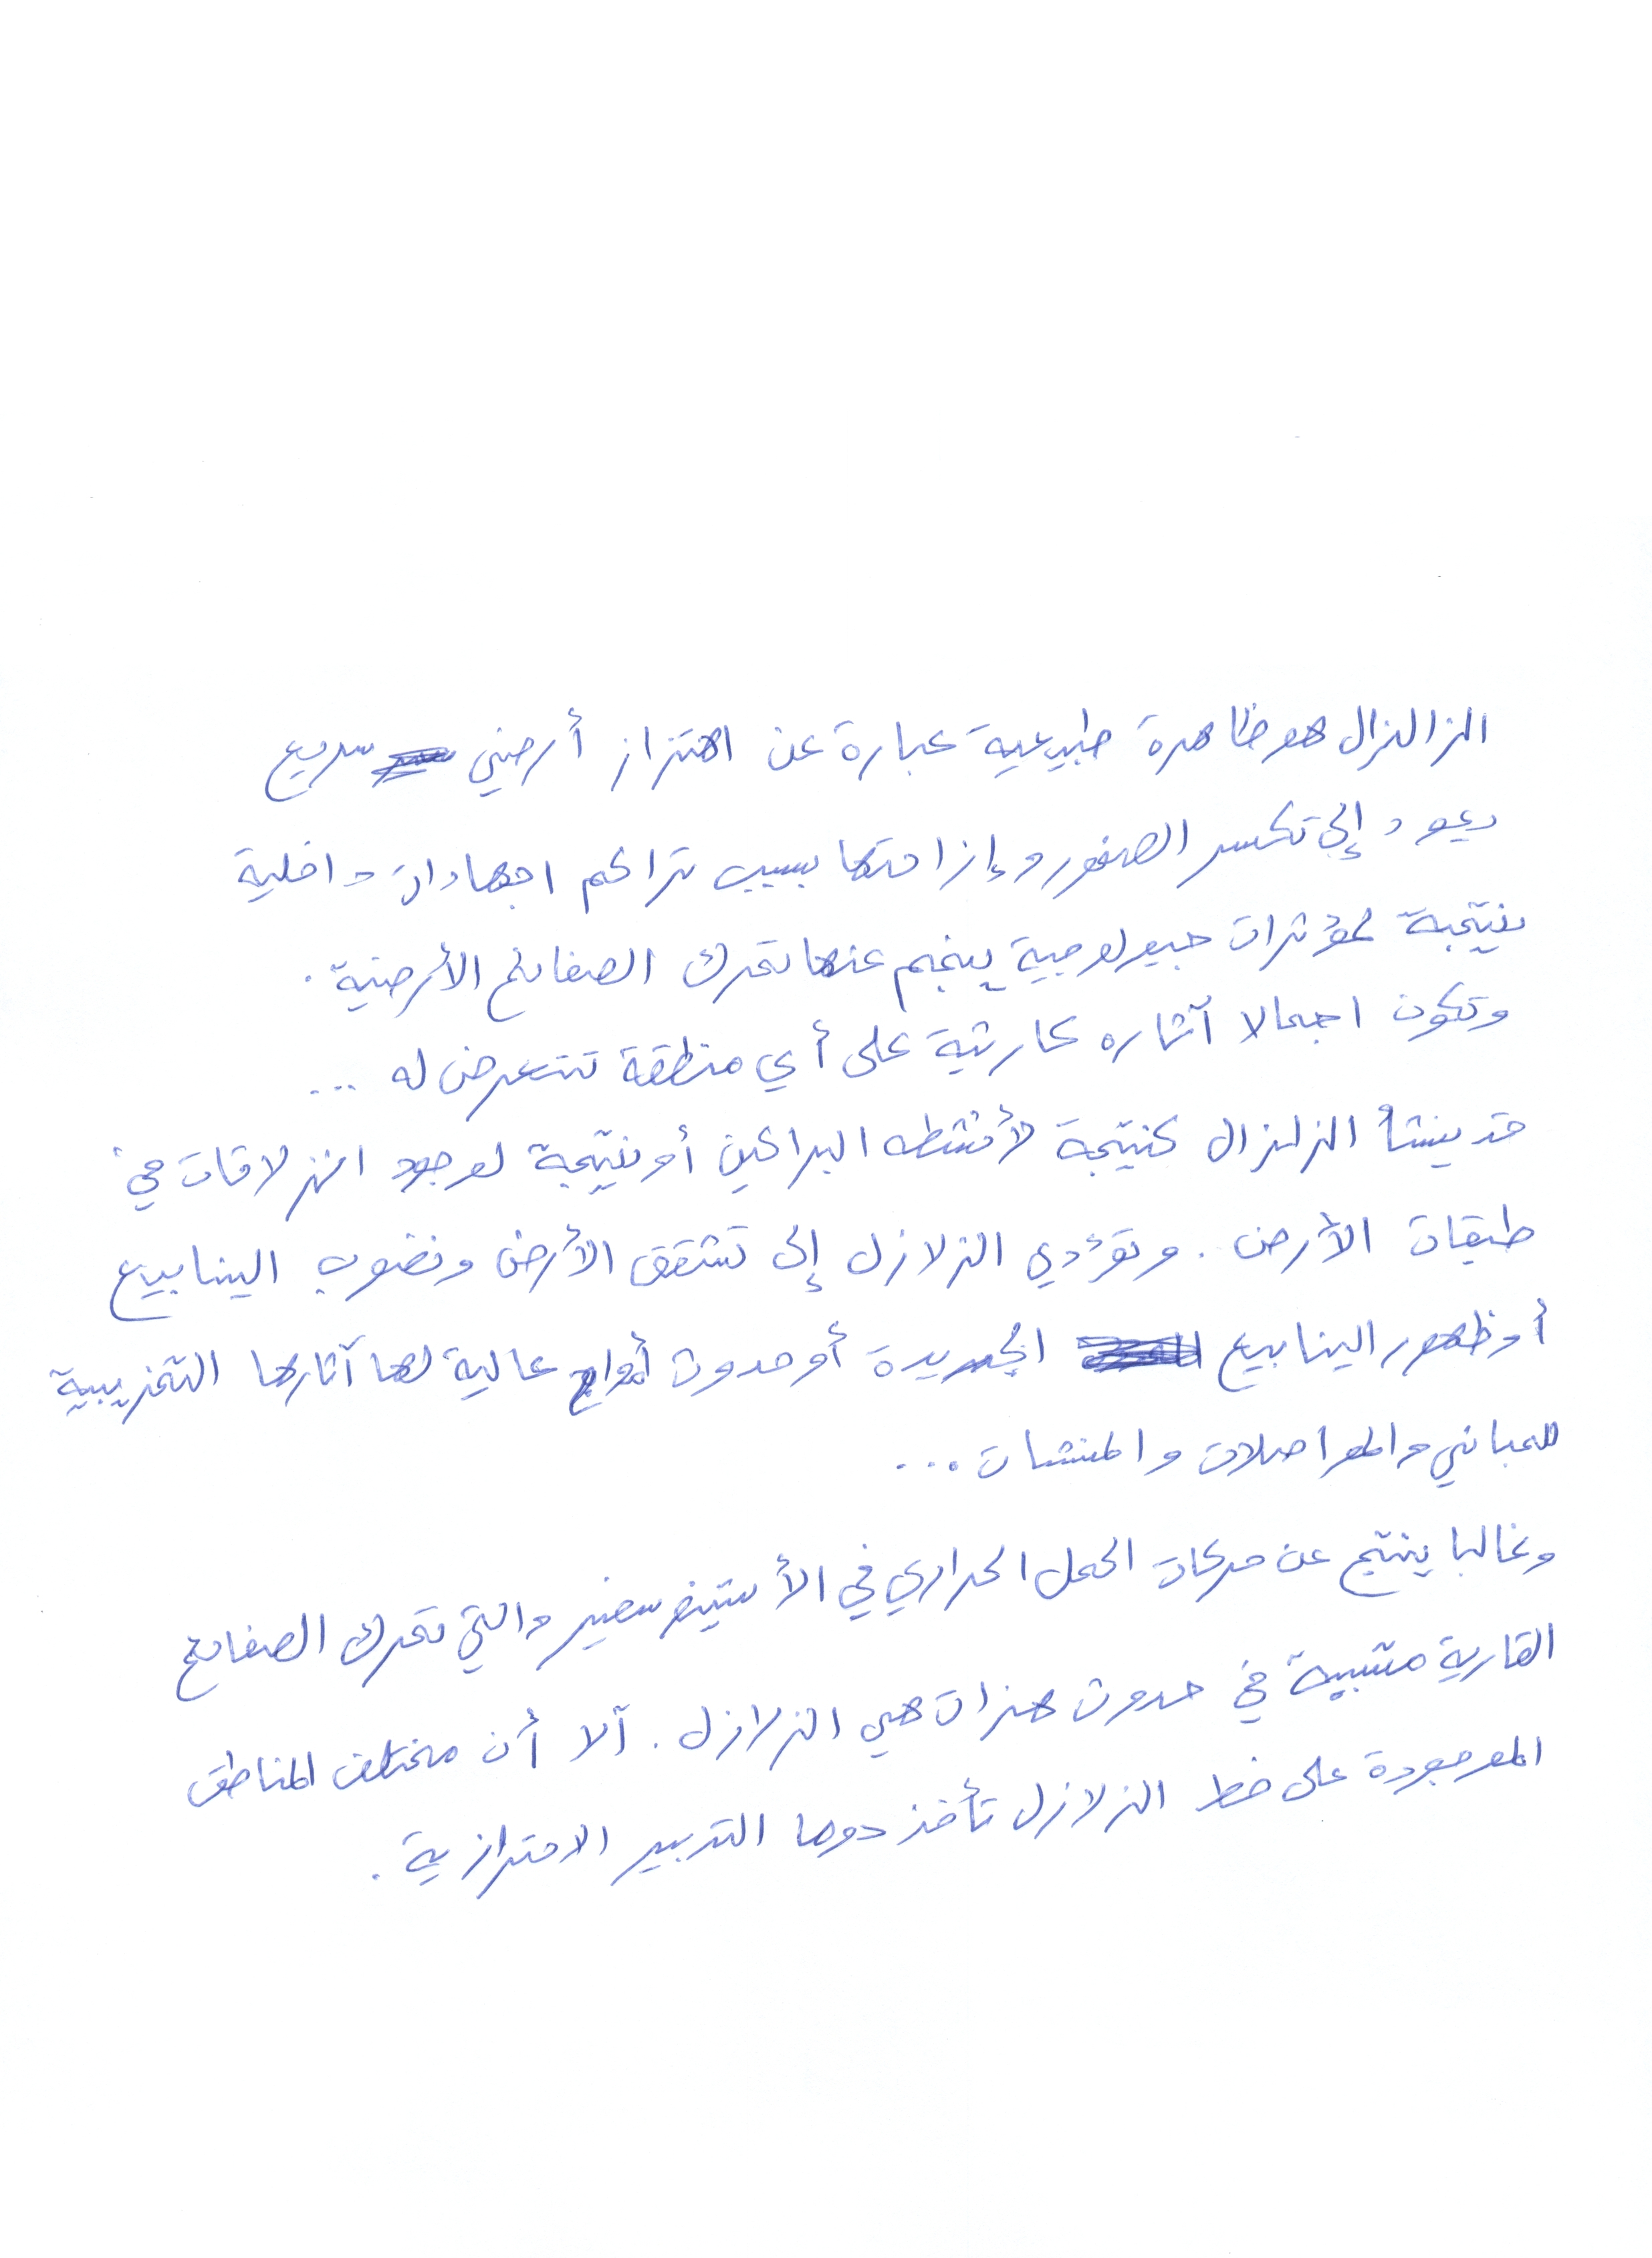 الزالنزال هو ظاهرة طبيعية عبارة عن اهتزاز أرضي سريع
يعود إلى تكسر الصخور وإزاحتها بسبب تراكم اجهادات داخلية
نتيجة لمؤثرات جيولوجية ينجم عنها تحرك الصفائح الأرضية.
وتكون اجمالا آثاره كارثية على أي منطقة تتعرض له ...
قد ينشأ الزلزال كنتيجة لأنشطه البراكين أو نتيجة لوجود انزلاقات في
طبقات الأرض. وتؤدي الزلازل إلى تشقق الأرض ونضوب الينابيع
أو ظهور الينابيع الجديدة أو حدوث أمواج عالية لها آثارها التخريبية
للمباني والمواصلات والمنشات ...
وغالبا ينتج عن حركات الحمل الحراري في الأستينوسفير والتي تحرك الصفائح
القارية متسببة في حدوث هزات هي الزلازل. ألا أن مختلف المناطق
الموجودة على خط الزلازل تأخذ دوما التدبير الاحترازية.